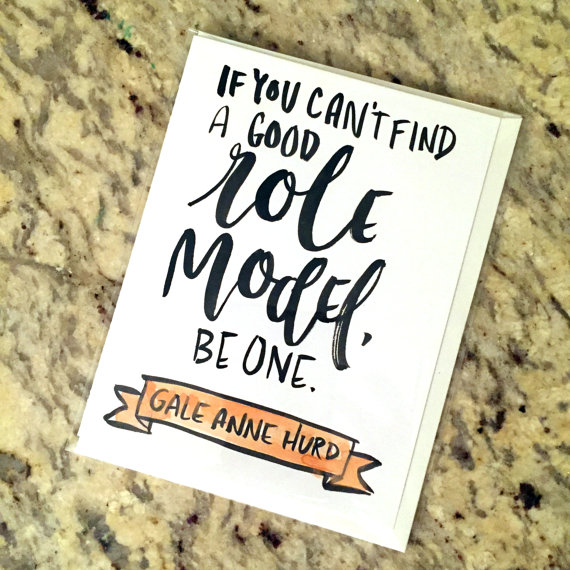 IF YOU CAN'T FIND
A GOOD
role
Model,
BE ONE.
GALE ANNE HURD